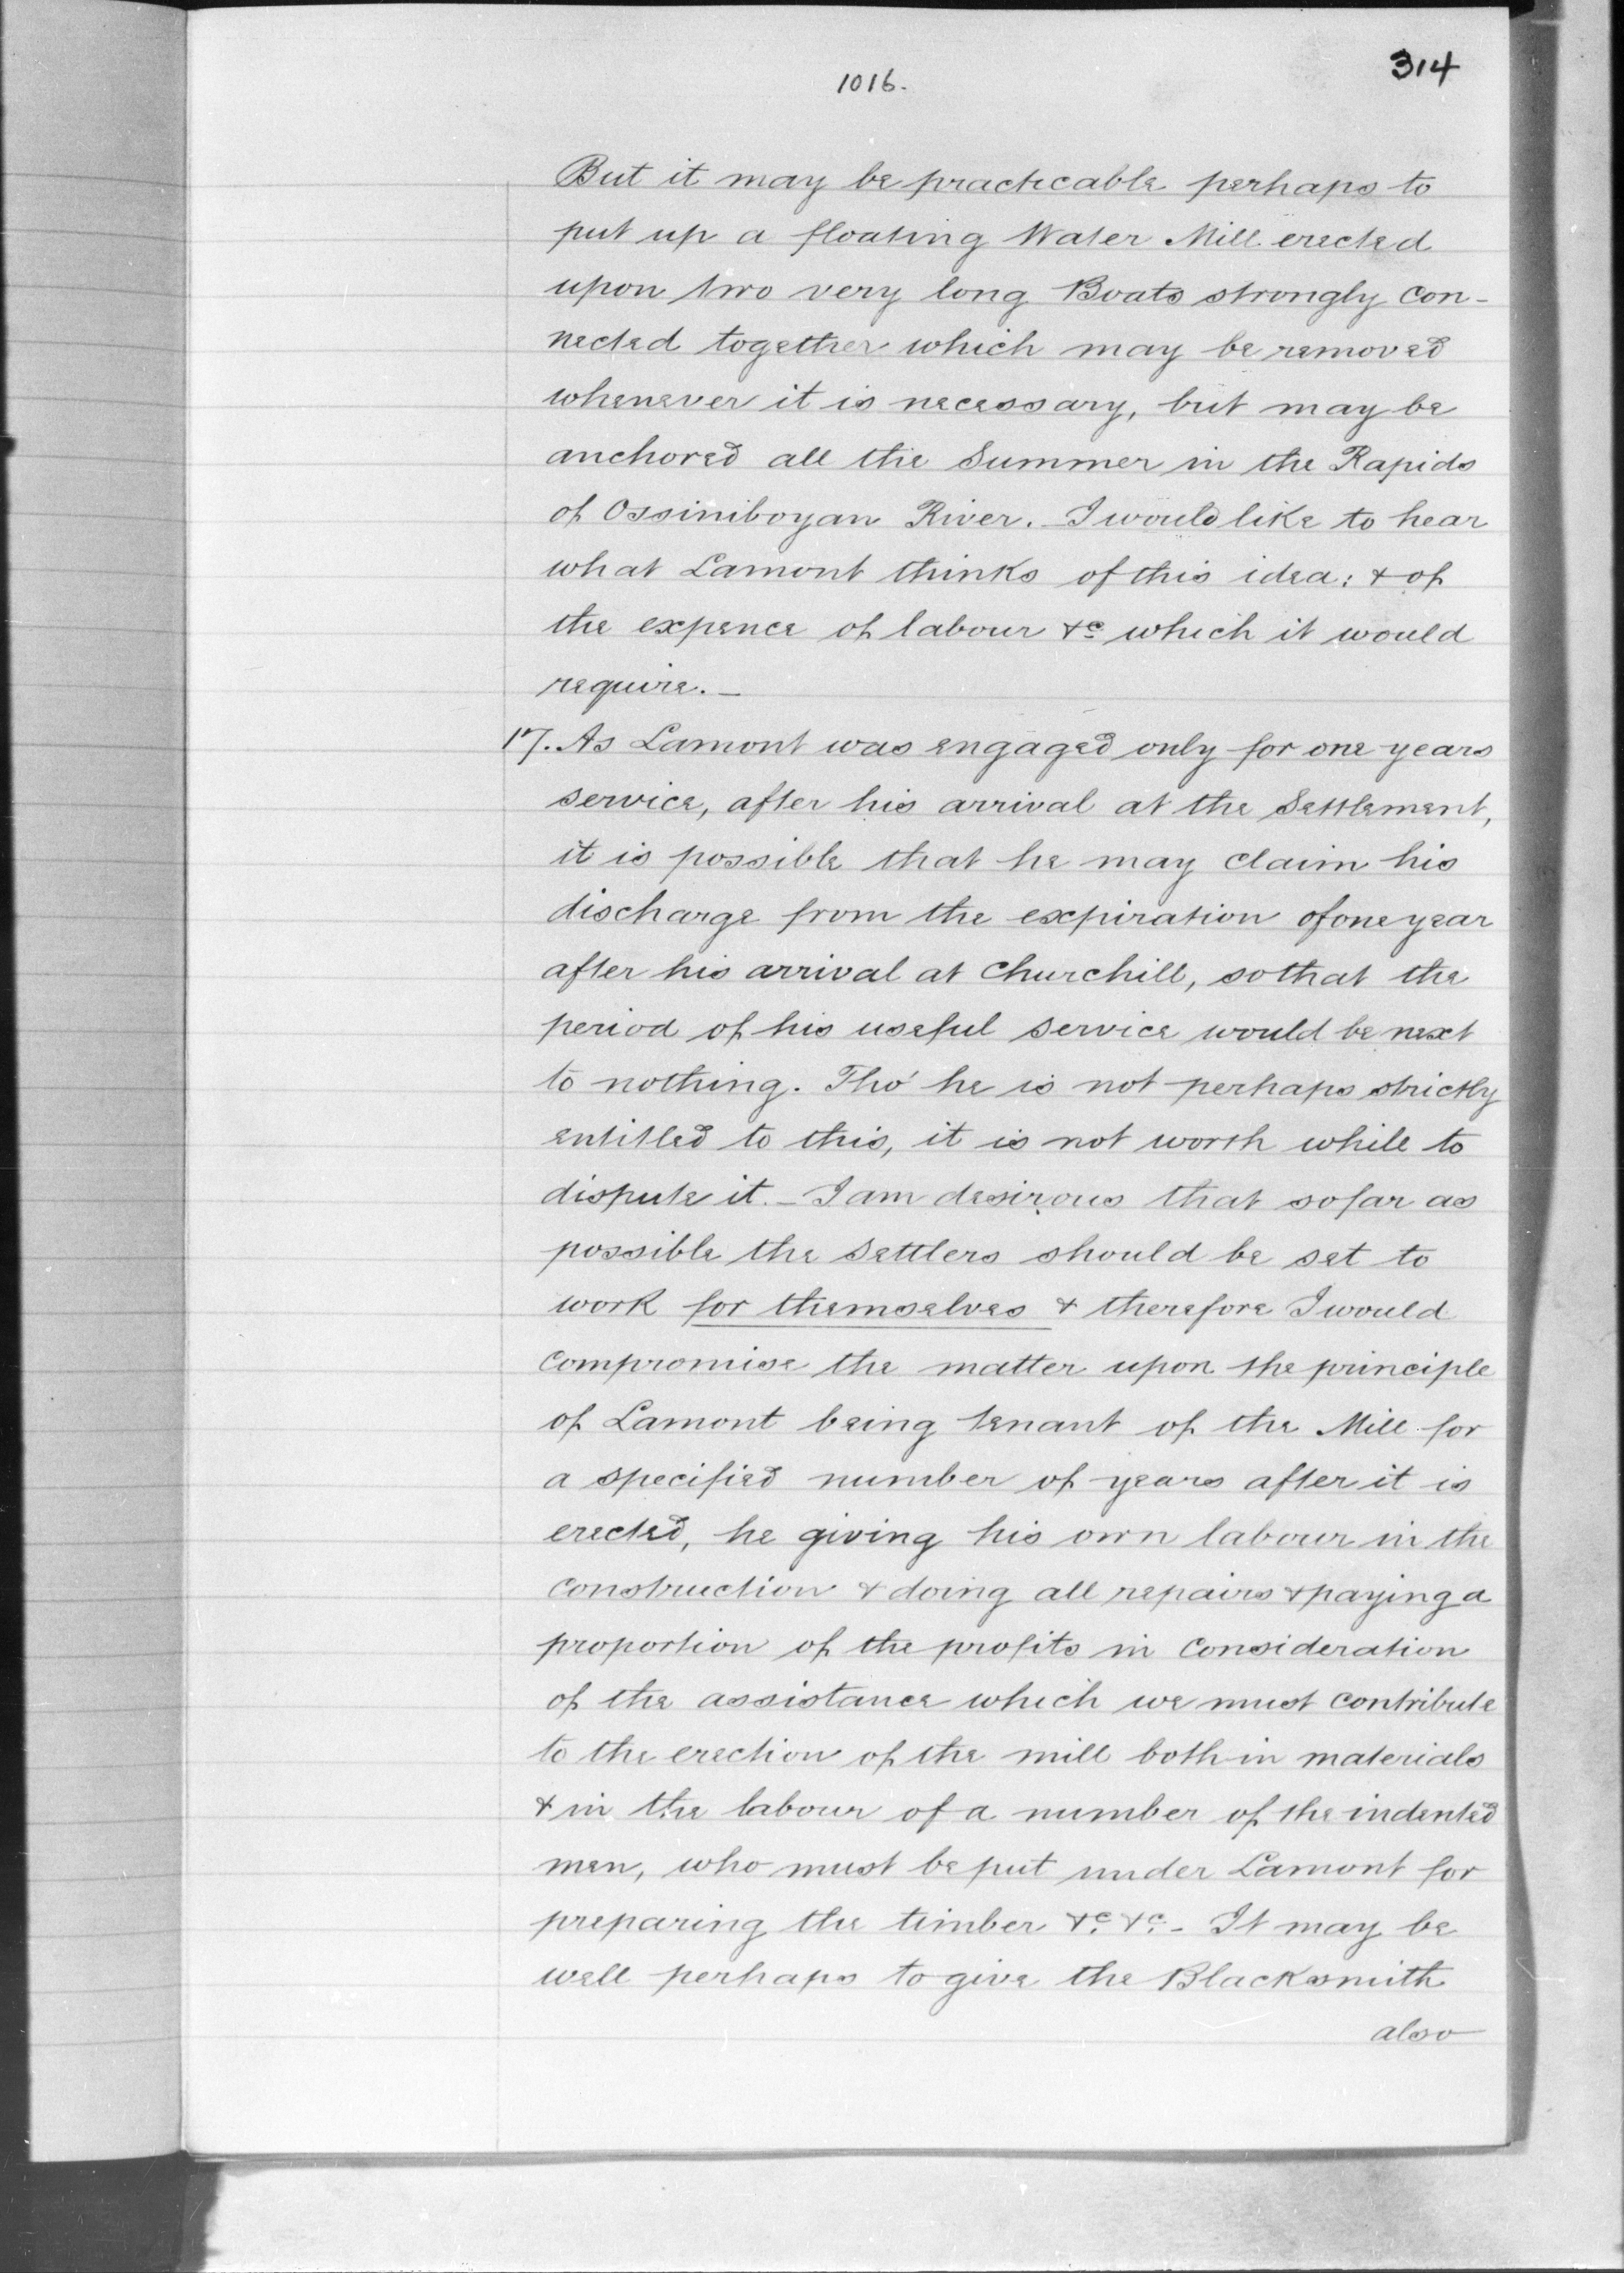 314
1016.
But it may be practicable perhaps to
put up a floating Water Mill erected
upon two very long Boats strongly con-
nected together which may be removed
whenever it is necessary, but may be
anchored all the Summer in the Rapids
of Ossiniboyan River. – I would like to hear
what Lamont thinks of this idea: & of
the expence of labour &c which it would
require. –
17. As Lamont was engaged only for one years
service, after his arrival at the Settlement,
it is possible that he may claim his
discharge from the expiration of one year
after his arrival at Churchill, so that the
period of his useful service would be next
to nothing. Tho' he is not perhaps strictly
entitled to this, it is not worth while to
dispute it. – I am desirous that so far as
possible the settlers should be set to
work for themselves & therefore I would
compromise the matter upon the principle
of Lamont being tenant of the Mill for
a specified number of years after it is
erected, he giving his own labour in the
construction & doing all repairs & paying a
proportion of the profits in consideration
of the assistance which we must contribute
to the erection of the mill both in materials
& in the labour of a number of the indented
men, who must be put under Lamont for
preparing the timber &c. &c. – It may be
well perhaps to give the Blacksmith
also